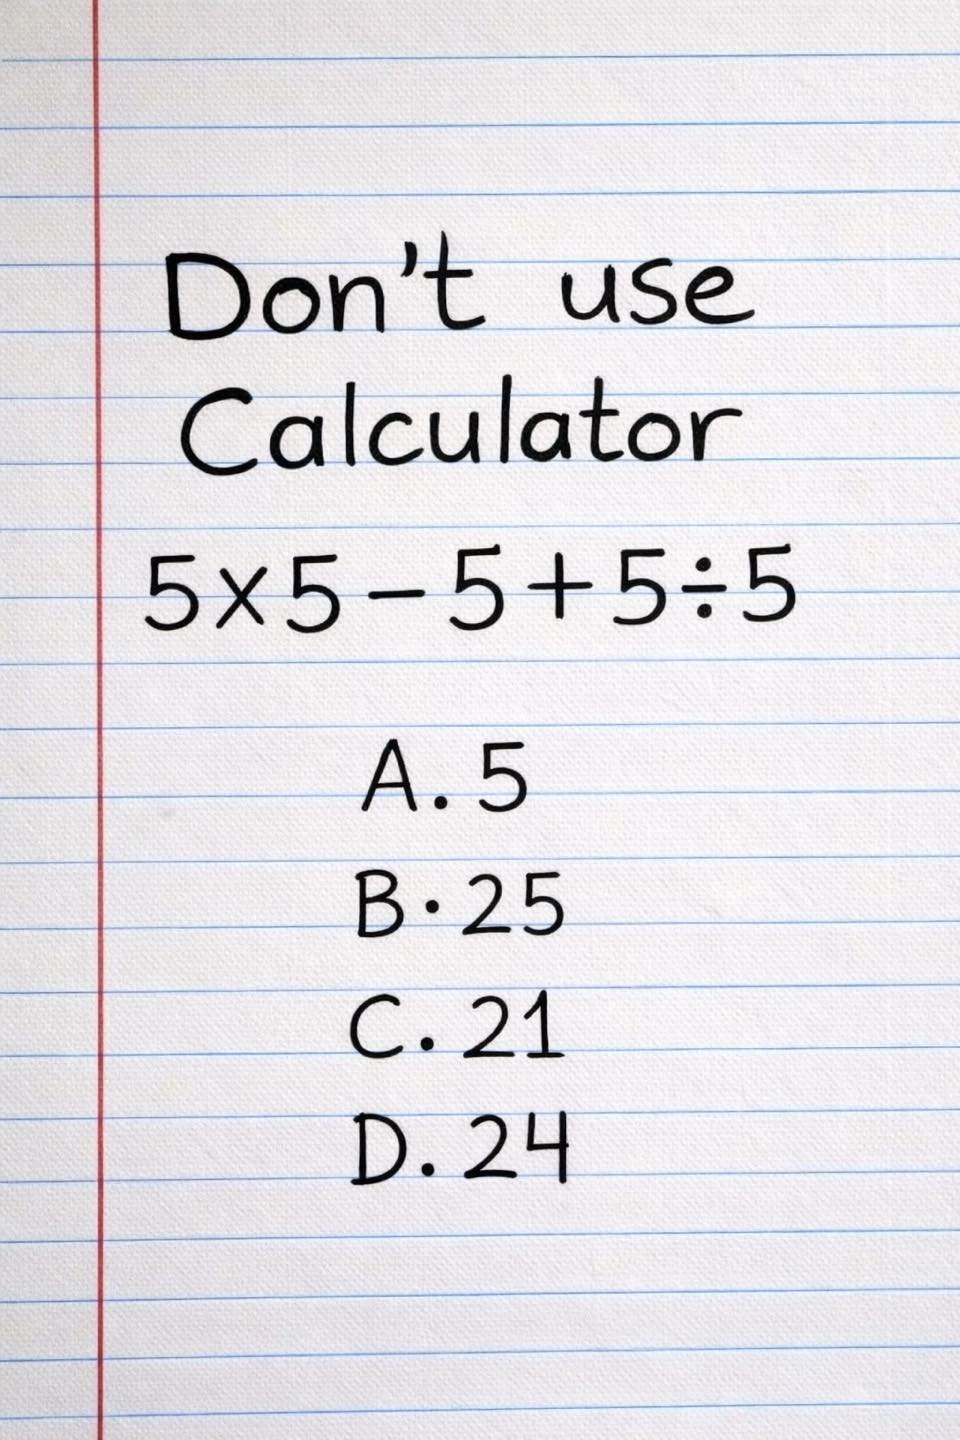 Don't use
Calculator
5×5−5+5÷5
A. 5
B. 25
C. 21
D. 24